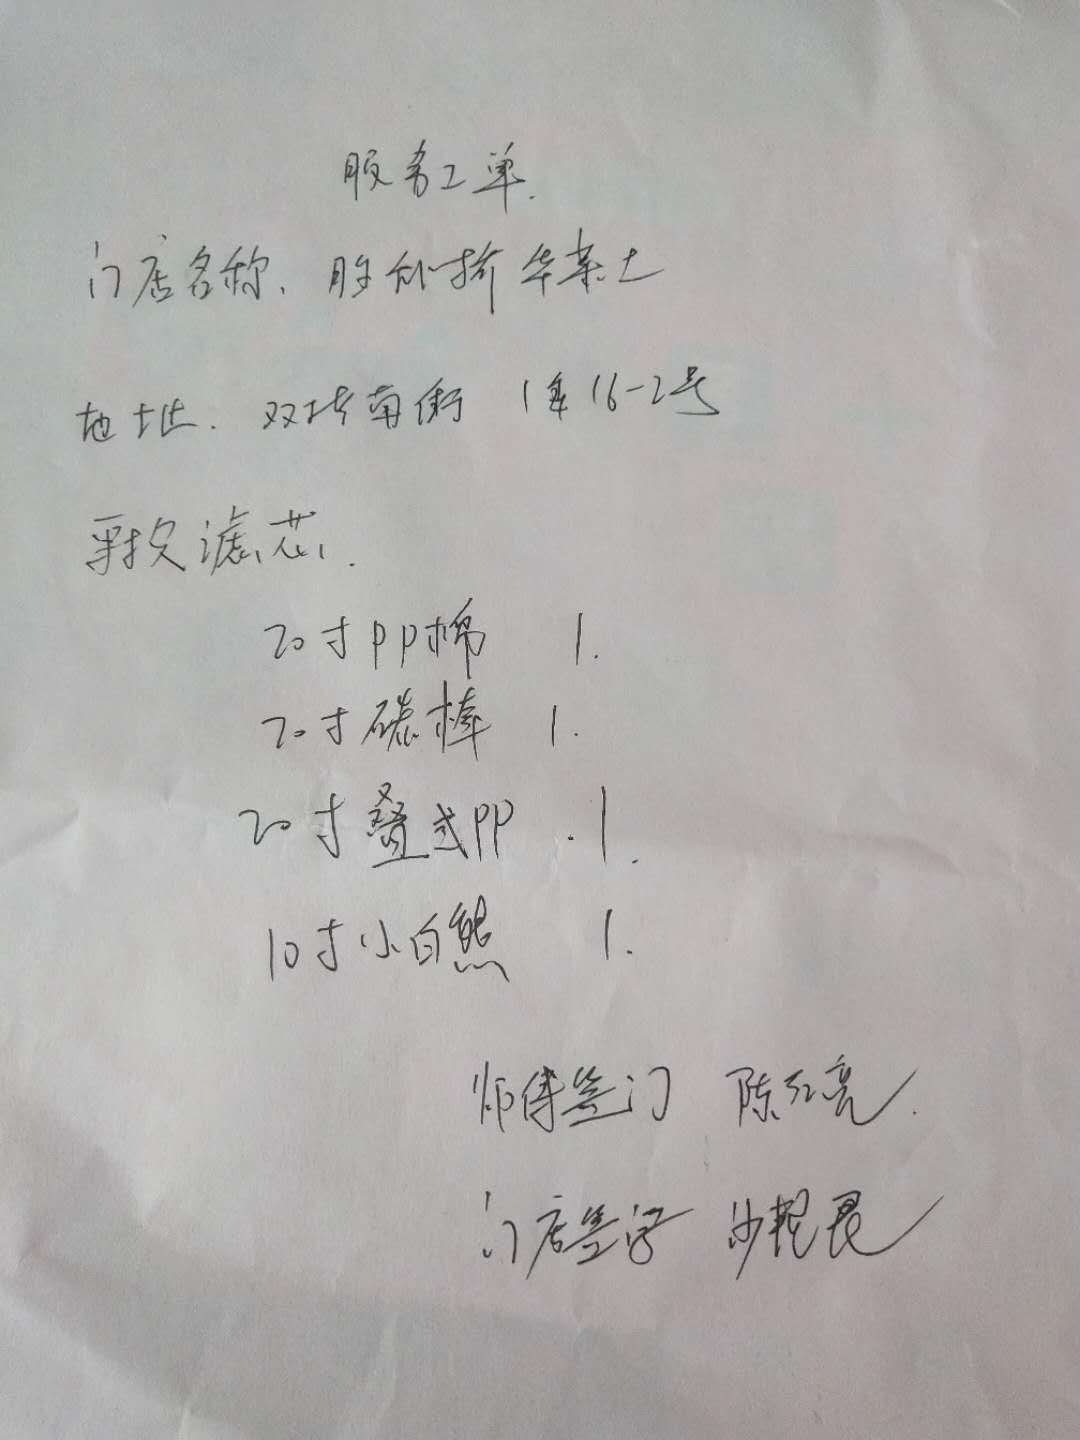 服务工单.
门店名称、
地址. 双 南街 16-2号
滤芯.
20寸PP棉 1.
20寸碳棒 1.
20寸叠式PP .1.
10寸小白熊 1.
师傅签门 陈红亮.
门店签字